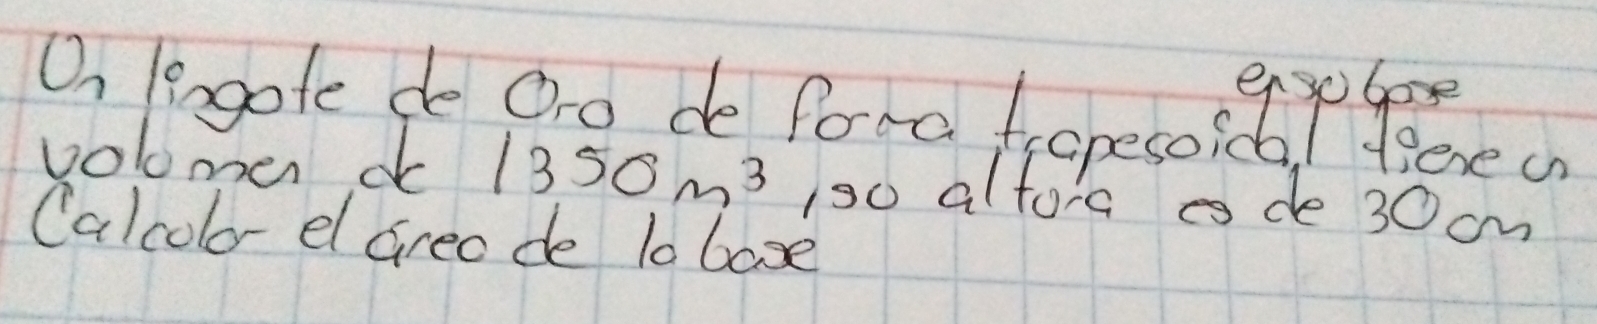 en su base
Un lingote de Oro de forma trapesoidal tiene un
volumen de 1350 m³, su altura es de 30 cm
Calcular el área de la base